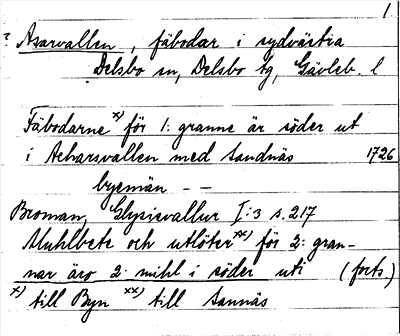 1
? Asarvallen, fäbodar i sydvästra
Delsbo sn, Delsbo tg, Gävleb. l
Fäbodarne x) för 1: granne är söder ut
i Acharsvallen med Sandnäs 1726
byemän - -
Broman, Glysisvallur I:3 s. 217
Muhlbete och utlöter xx) för 2: gran-
nar äro 2: mihl i söder uti (forts)
x) till Byn xx) till Sannäs